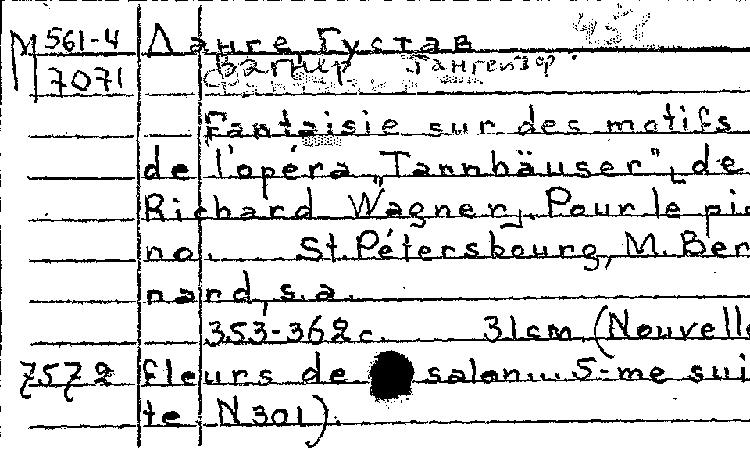 М 561-4 Ланге, Густав
7071 Вагнер Тангейзер.
Fantaisie sur des motifs
de l'opéra „Tannhäuser" de
Richard Wagner. Pour le pia
no. St. Pétersbourg, M. Ber
nard, s.a.
353-362 c. 31cm (Nouvelle
7572 fleurs de salon... 5-me sui
te N301).